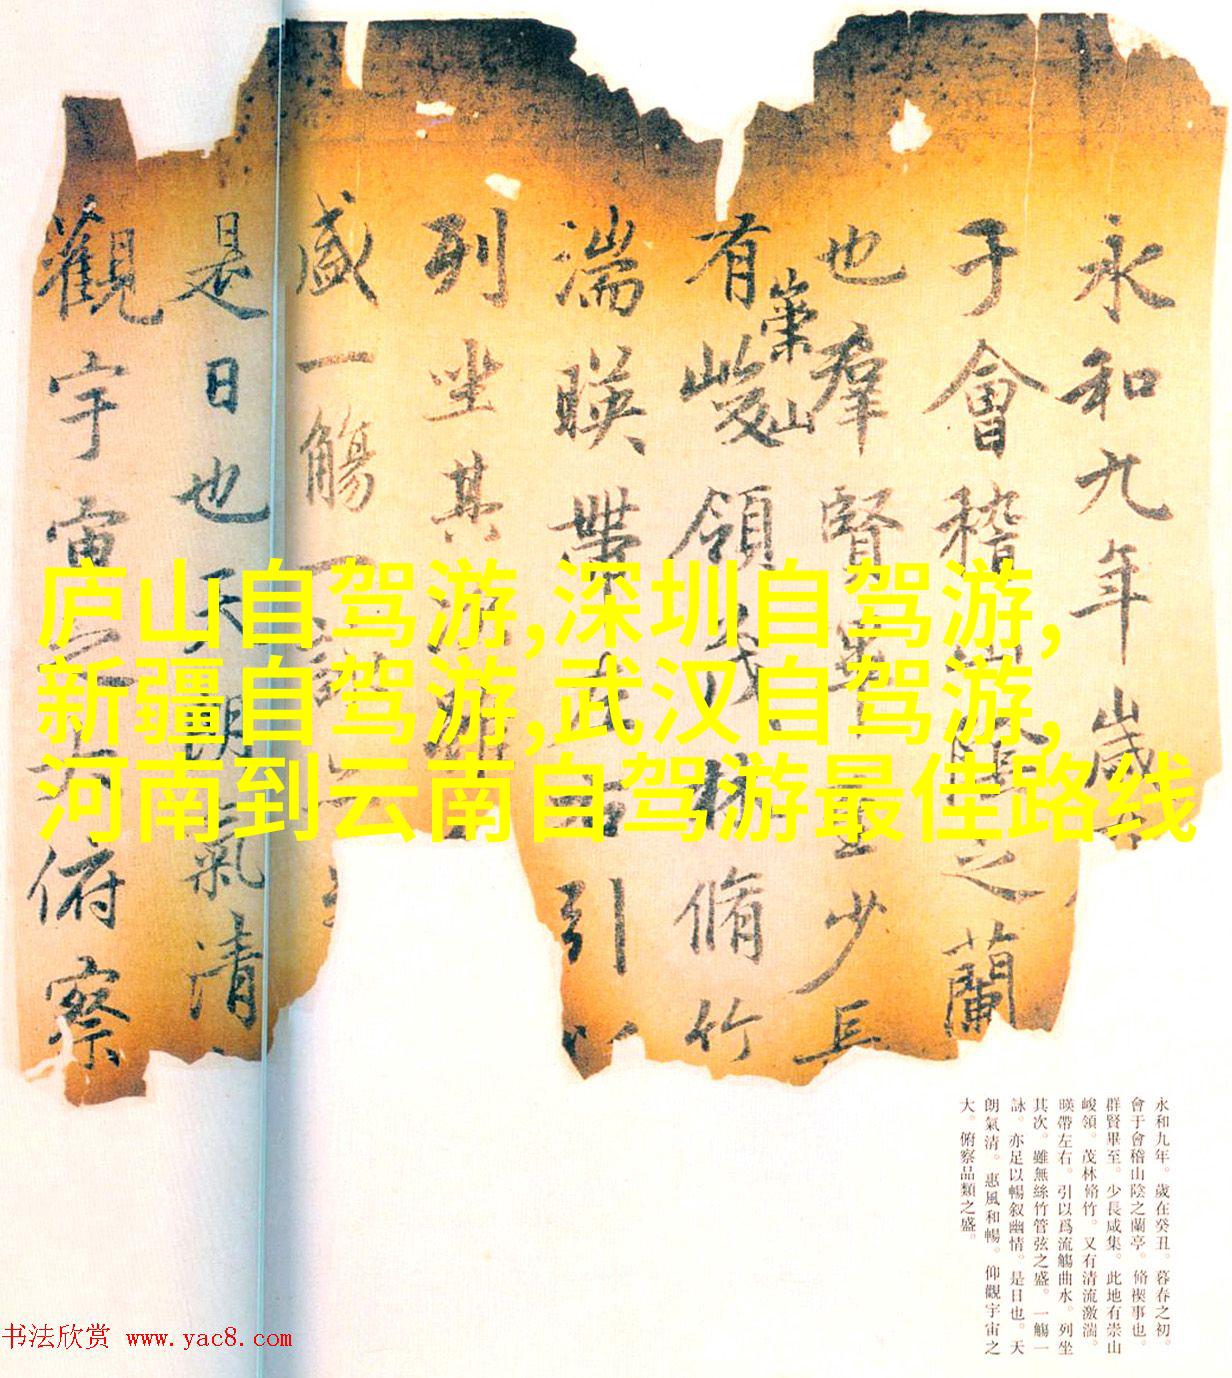 永和九年歲
于會稽山陰之蘭
也羣賢畢至少長
有崇山峻領茂林脩竹
湍暎帶左右引以
列坐其次雖
盛一觴一詠亦
是日也天朗氣清
觀宇宙之大俯察
庐山自驾游,深圳自驾游,
新疆自驾游,武汉自驾游,
河南到云南自驾游最佳路线
永和九年。歲在癸丑。暮春之初。
會于會稽山陰之蘭亭。脩禊事也。
群賢畢至。少長咸集。此地有崇山
峻領。茂林脩竹。又有清流激湍。
暎帶左右。引以爲流觴曲水。列坐
其次。雖無絲竹管弦之盛。一觴一
詠。亦足以暢叙幽情。是日也。天
朗氣清。惠風和暢。仰觀宇宙之
大。俯察品類之盛。
书法欣赏 www.yac8.com